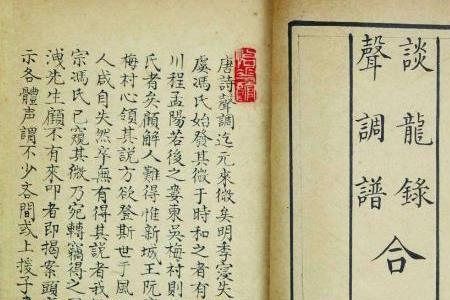 談龍錄
聲調譜
合
唐詩聲調迄元來微矣明季寖失
虞馮氏始發其微于時和之者有
川程孟陽若後之婁東吳梅村則
氏者矣顧解人難得惟新城王阮
梅村心領其說方欲登斯世于風
人咸自失然卒無有得其說者我
宗馮氏已窺其微乃宛轉竊得之
洩先生顧不有來叩者即揭案頭
示各體声謂不少吝間或上援子